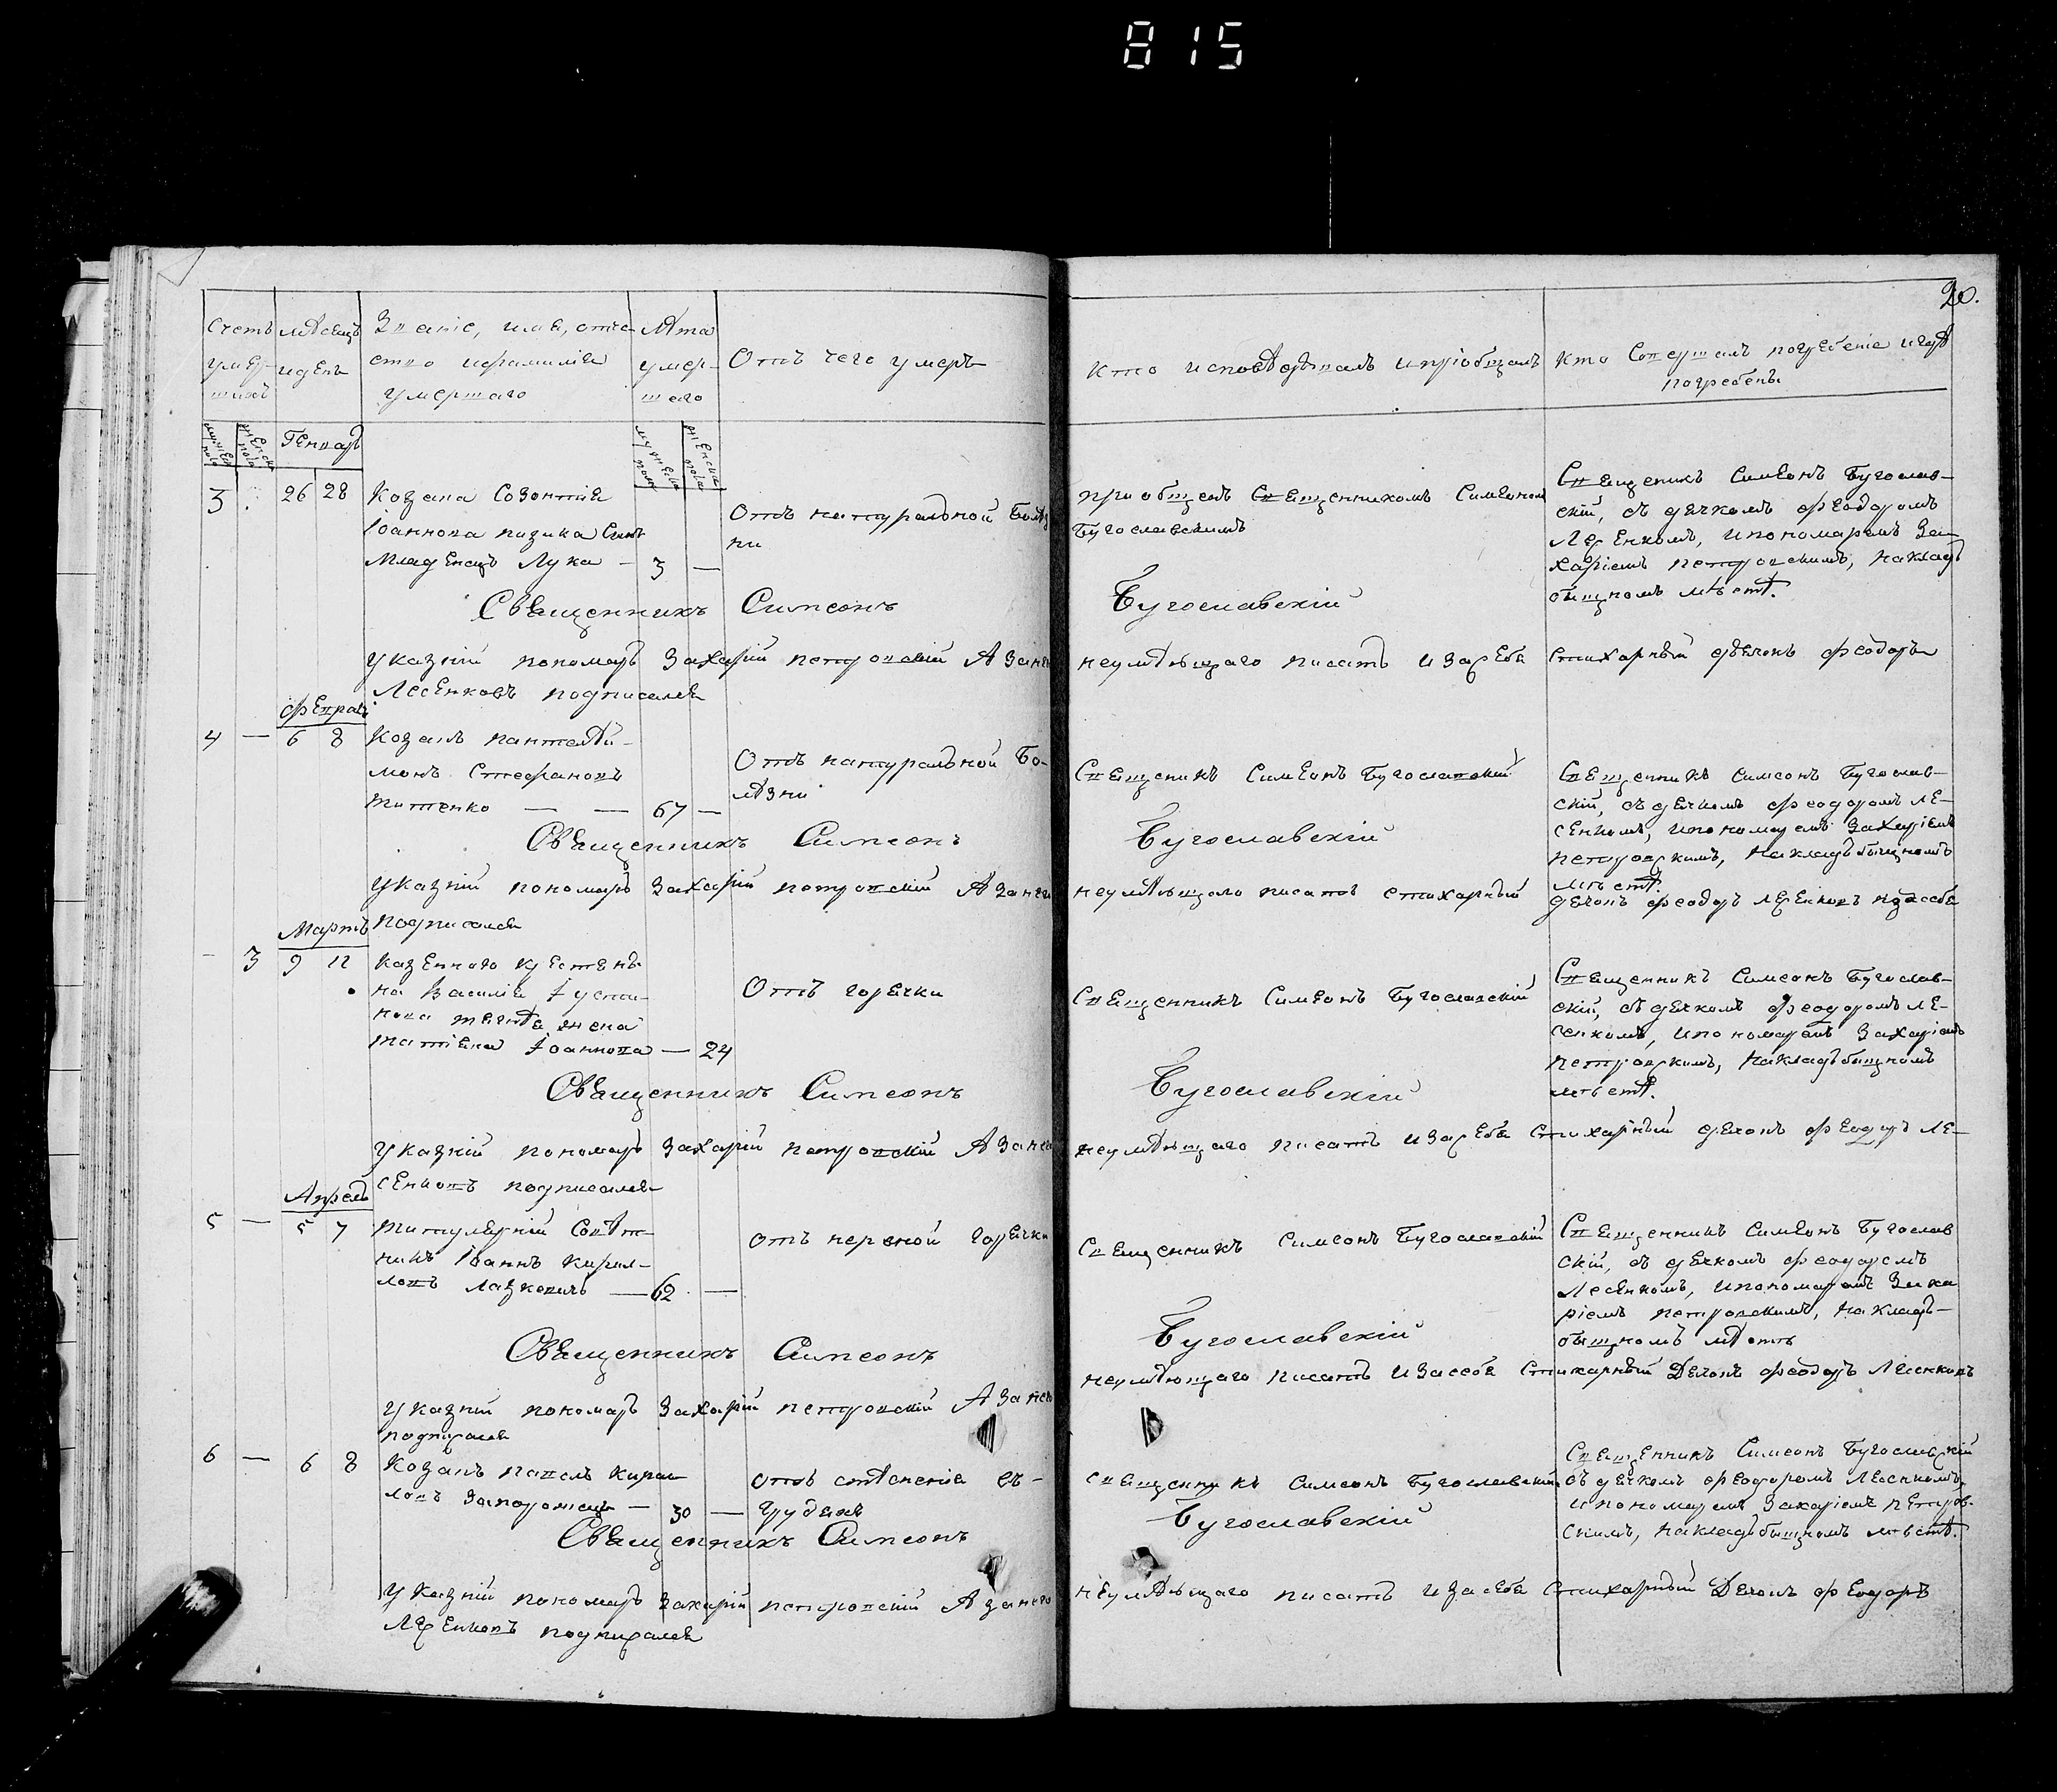 815
20.
Счетъ
умер-
шихъ
мѣсяцъ
и день
Званіе, имя, отче-
ство и фамилія
умершаго
Лѣта
умер-
шаго
Отъ чего умеръ
Кто исповѣдывалъ и пріобщалъ
Кто совершалъ погребеніе и гдѣ
погребены
Генварь
3 26 28 Козака Созонтія
Іоаннова сынъ
младенецъ Лука – 3 —
Отъ натуральной болѣз
ни
пріобщенъ Священникомъ Симеономъ
Бугославскимъ
Священникъ Симеонъ Бугослав-
скій, съ дячкомъ Феодоромъ
Лесенкомъ, и пономаремъ За-
харіемъ Петровскимъ, на кладъ
бищномъ мѣстѣ.
Священникъ Симеонъ Бугославскій
Указній пономарь Захарій Петровскій А За него
неумѣющаго писать и за себе Стихарный дячокъ Феодоръ
Лесенковъ подписался
Февраль
4 — 6 8 Козакъ Пантелѣй-
монъ Стефановъ
Титенко — — 67 —
Отъ натуральной бо-
лѣзни
Священикъ Симеонъ Бугославскій
Священникъ Симеонъ Бугослав-
скій, съ дячкомъ Феодоромъ Ле-
сенкомъ, и пономаремъ Захаріемъ
Петровскимъ, на кладъбищномъ
мѣстѣ.
Священникъ Симеонъ Бугославскій
Указній пономарь Захарій Петровскій А За него
неумѣющаго писать стихарный
дячокъ Феодоръ Лесенковъ и за себе
подписался
Мартъ
– 3 9 11 Казенного крестяни-
на Василія Іусти-
нова жена
Татіана Іоаннова — 24
Отъ горячки
Священникъ Симеонъ Бугославскій
Священникъ Симеонъ Бугослав-
скій, съ дячкомъ Феодоромъ Ле-
сенкомъ, и пономаремъ Захаріемъ
Петровскимъ, на кладъбищномъ
мѣстѣ.
Священникъ Симеонъ Бугославскій
Указній пономарь Захарій Петровскій А За него
неумѣющаго писать и за себе Стихарный дячокъ Феодоръ Ле-
сенковъ подписался
Апрель
5 — 5 7 Титулярній Совѣт-
никъ Іоаннъ Кирил-
ловъ — 62 —
отъ нервной горячки
Священникъ Симеонъ Бугославскій
Священникъ Симеонъ Бугослав
скій, съ дячкомъ Феодоромъ
Лесенкомъ, и пономаремъ Заха
ріемъ Петровскимъ, на кладъ-
бищномъ мѣстѣ
Священникъ Симеонъ Бугославскій
Указній пономарь Захарій Петровскій А За него
неумѣющаго писать и за себе Стихарный Дячокъ Феодоръ Лесенковъ
подписался
6 — 6 8 Козакъ Павелъ Кирил
ловъ Запорожецъ — 30 —
отъ стѣсненія въ-
грудяхъ
Священникъ Симеонъ Бугославский
Священникъ Симеонъ Бугославскій
съ дячкомъ Феодоромъ Лесенкомъ,
и пономаремъ Захаріемъ Петров-
скимъ, на кладъбищномъ мѣстѣ.
Священникъ Симеонъ Бугославскій
Указній пономарь Захарій Петровскій А за него
неумѣющаго писать и за себе Стихарный Дячокъ Феодоръ
Лесенковъ подписался